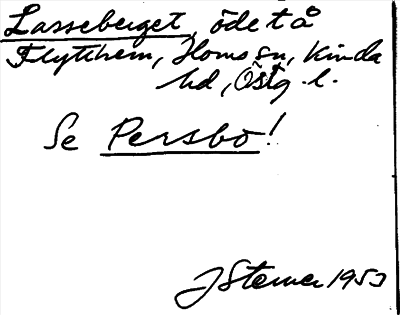 Lasseberget, ödet å
Flytthem, Horns sn, Kinda
hd, Östg. l.
Se Persbo!
J Sterner 1953